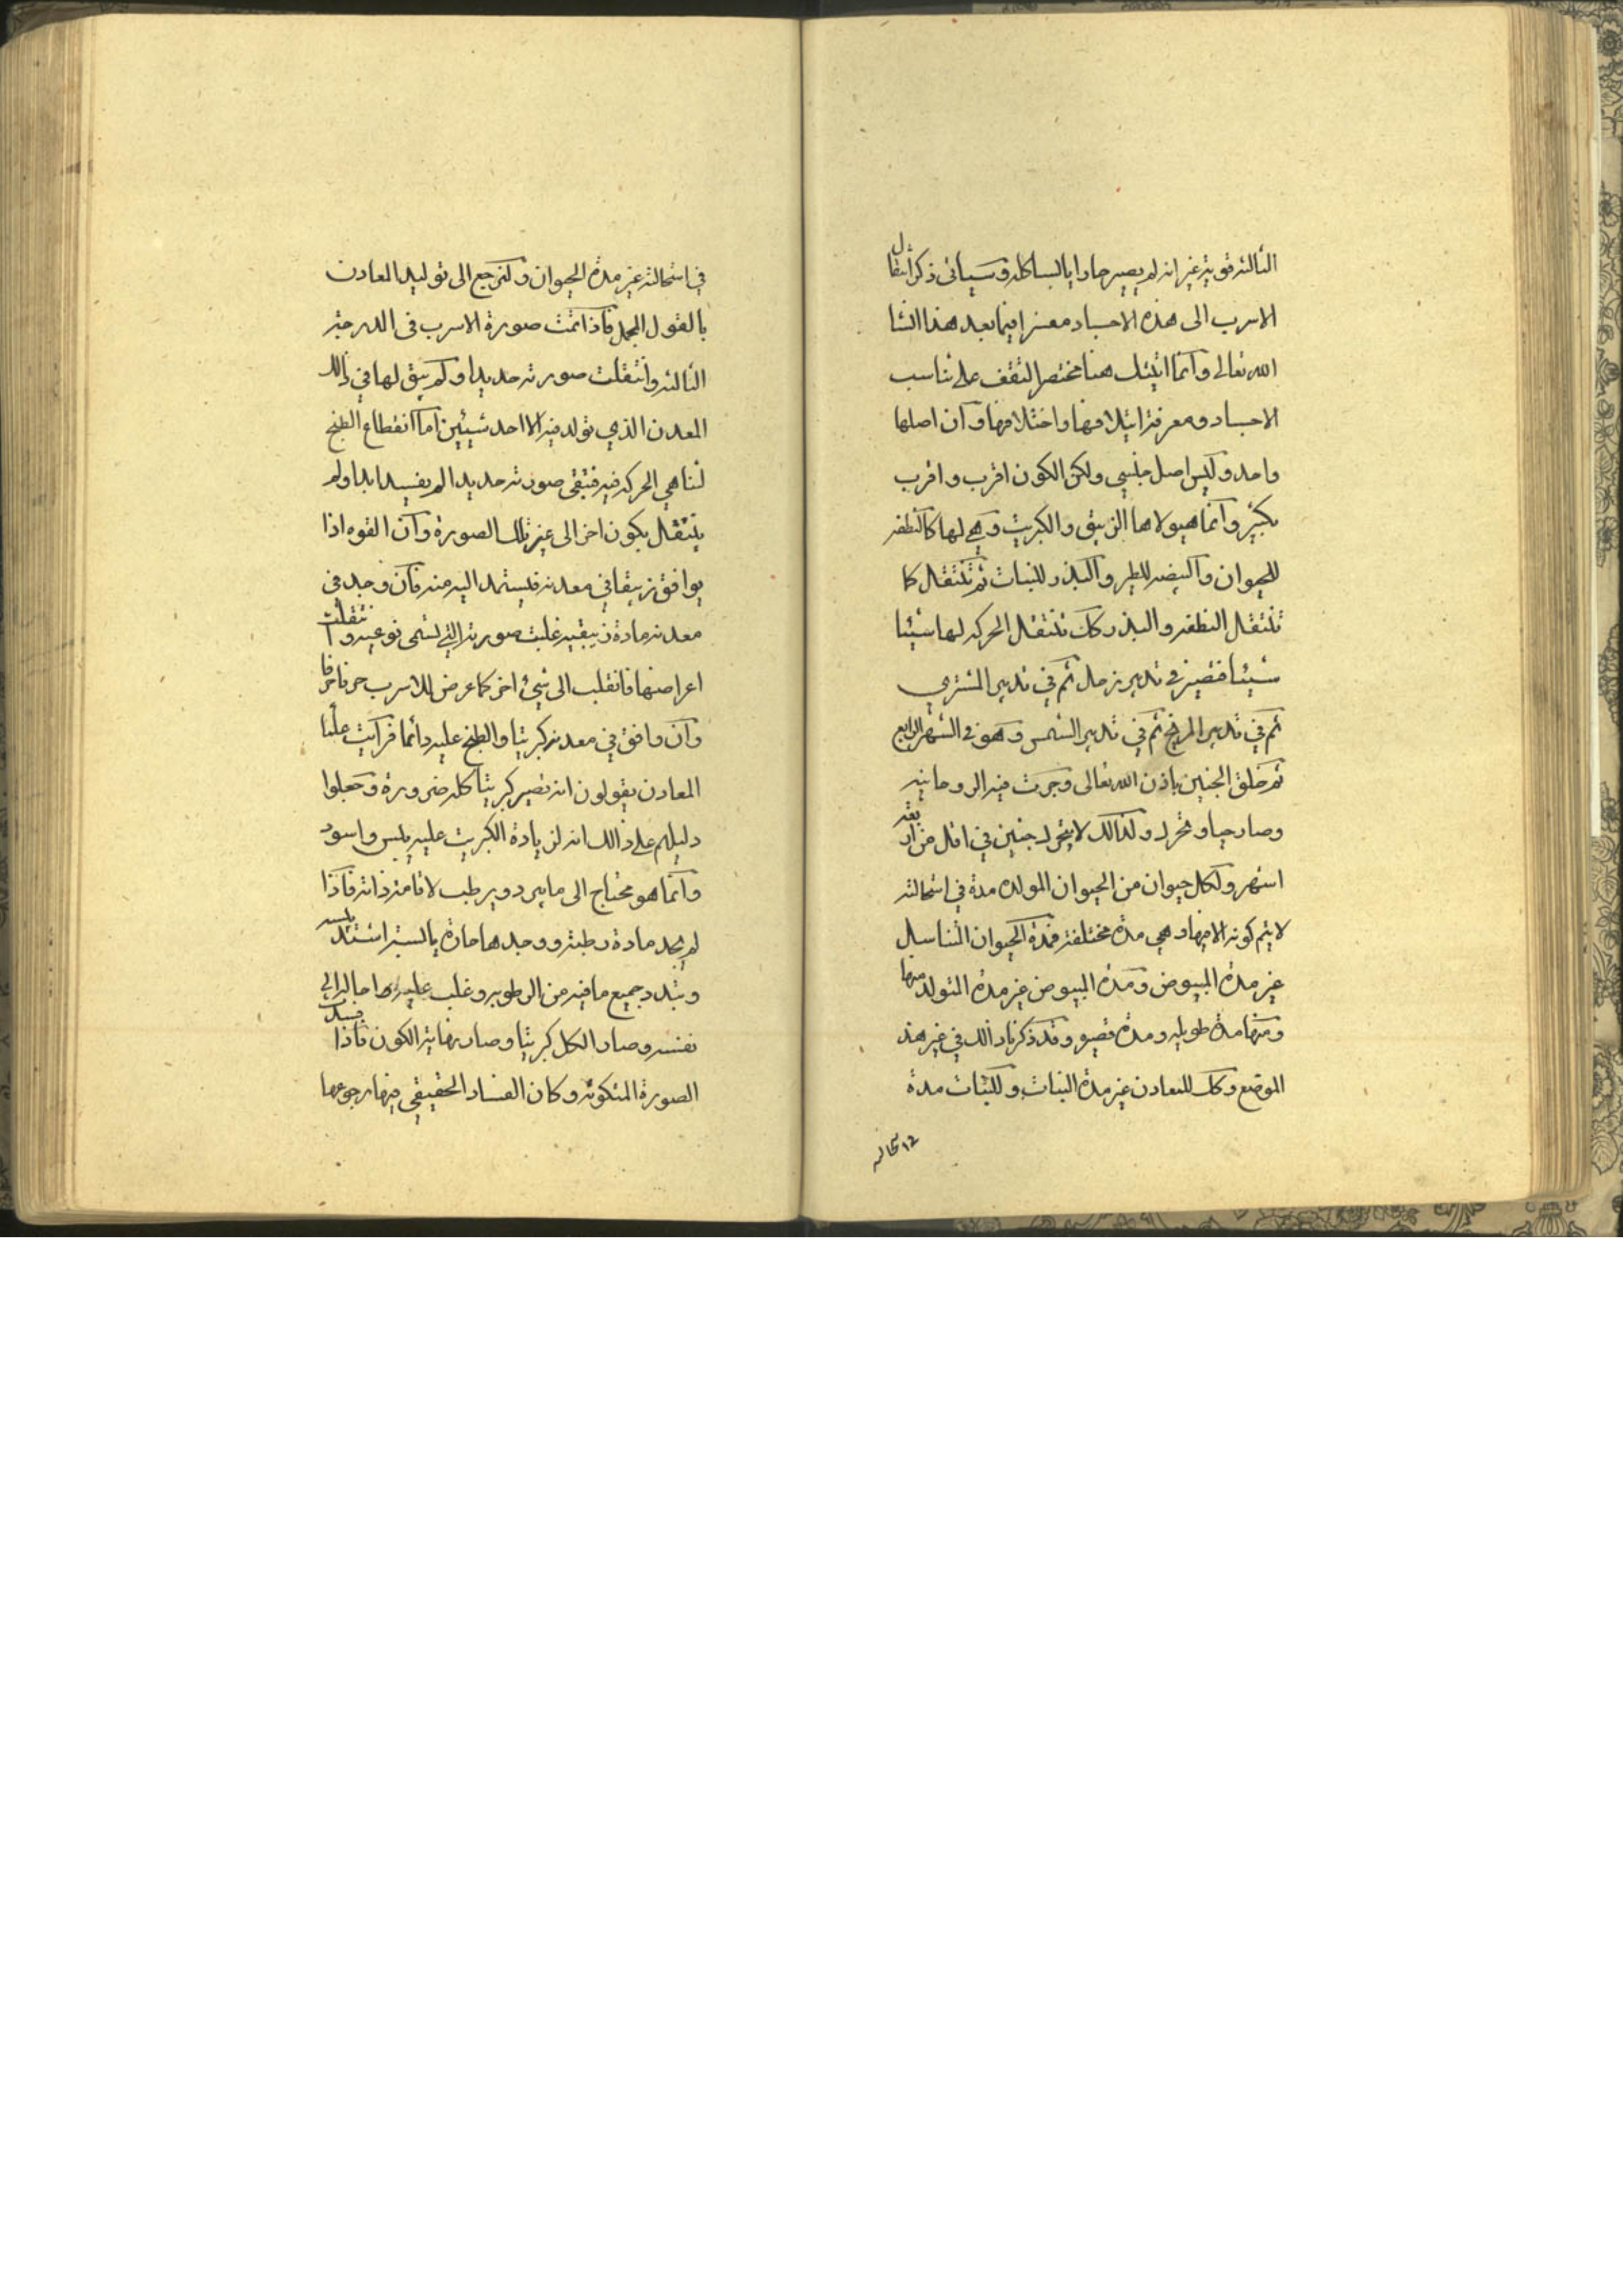 الثالثه قويه غير انه لم يصير حارا يابسا كله وسياتى ذكر انتقال
الاسرب الى هذه الاجساد مفسرا فيما بعد هذا انشا
الله تعالى وانما اتيتك هنا مختصرا لتقف على تناسب
الاجساد ومعرفة ايتلافها واختلافها وان اصلها
واحد وليس اصل جنسي ولكن الكون اقرب واقرب
بكثير وانما هيولاها الزيبق والكبريت وهي لها كالنطفه
للحيوان والبيضه للطير والبذر للنبات ثم تنتقل كما
تنتقل النطفه والبذر كك تنتقل الحركه لها شيئا
شيئا فتصير في تدبير زحل ثم في تدبير المشتري
ثم في تدبير المريخ ثم في تدبير الشمس وهو في الشهر الرابع
ثم خلق الجنين باذن الله تعالى وجرت فيه الروحانيه
وصار حيا وتحرك ولذالك لا يتحرك جنين في اقل من اربعة
اشهر ولكل حيوان من الحيوان المولده مدة في استحالته
لا يتم كونه الا فيها وهي مدة مختلفه فمدة الحيوان المتناسل
غير مدة البيوض ومدة البيوض غير مدة المتولد منها
ومنها مدة طويله ومدة قصيره وقد ذكرنا ذالك في غير هذ
الموضع وكك للمعادن غير مدة النبات وللنبات مدة
في استحالته غير مدة الحيوان ولنرجع الى توليد المعادن
بالقول المجمل فاذا تمت صورة الاسرب فى الدرجة
الثالثه وانتقلت صورته حديدا ولم يبق لها في ذالك
المعدن الذي تولد فيه الا احد شيئين اما انقطاع الطبخ
لتناهي الحركه فيه فتبقى صورته حديدا لم يفسد ابدا ولم
ينتقل بكون اخر الى غير تلك الصورة وان القوه اذا
يوافق زيبقا في معدنه فيستمد اليه منه فان وجد في
معدنه مادة زيبقيه غلبت صورته التي تسمى نوعيه وانتقلت
اعراضها فانقلب الى شيئ اخر كما عرض للاسرب حرفا حرفا
وان وافق في معدنه كبريتا والطبخ عليه دائما فرايت
المعادن يقولون انه تصير كبريتا كله ضرورة وجعلوا
دليلهم على ذالك انه لزيادة الكبريت عليه يبس واسود
وانما هو محتاج الى ما يبرد ويرطب لاقامة ذاته فاذا
لم يجد مادة رطبة ووجدها حارة يابسة اشتد يبسه
وتبدد جميع ما فيه من الرطوبه وغلب عليه
نفسه وصار الكل كبريتا وصار نهاية الكون فاذا فسدت
الصورة المتكونه وكان الفساد الحقيقي فيها رجوعها